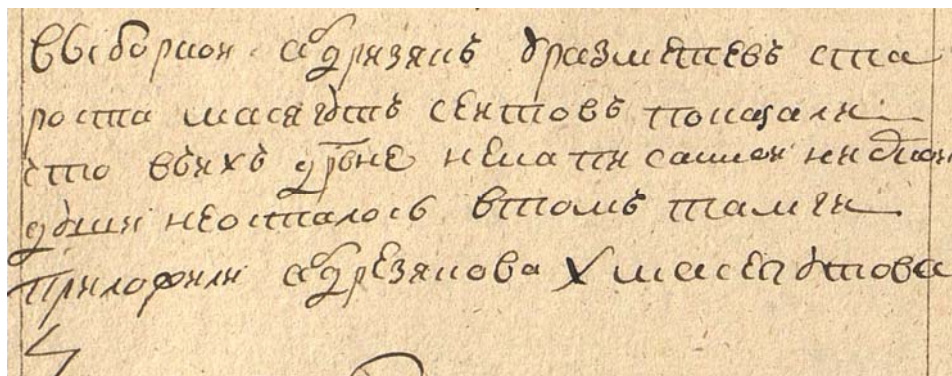 выборнои абдрязякъ уразметевъ ста
роста масягутъ сеитовъ показали
что въихъ дрвне ненаписаннои ниѡднои
души неосталось втомъ тамги
приложили абдрезякова Х масегутова